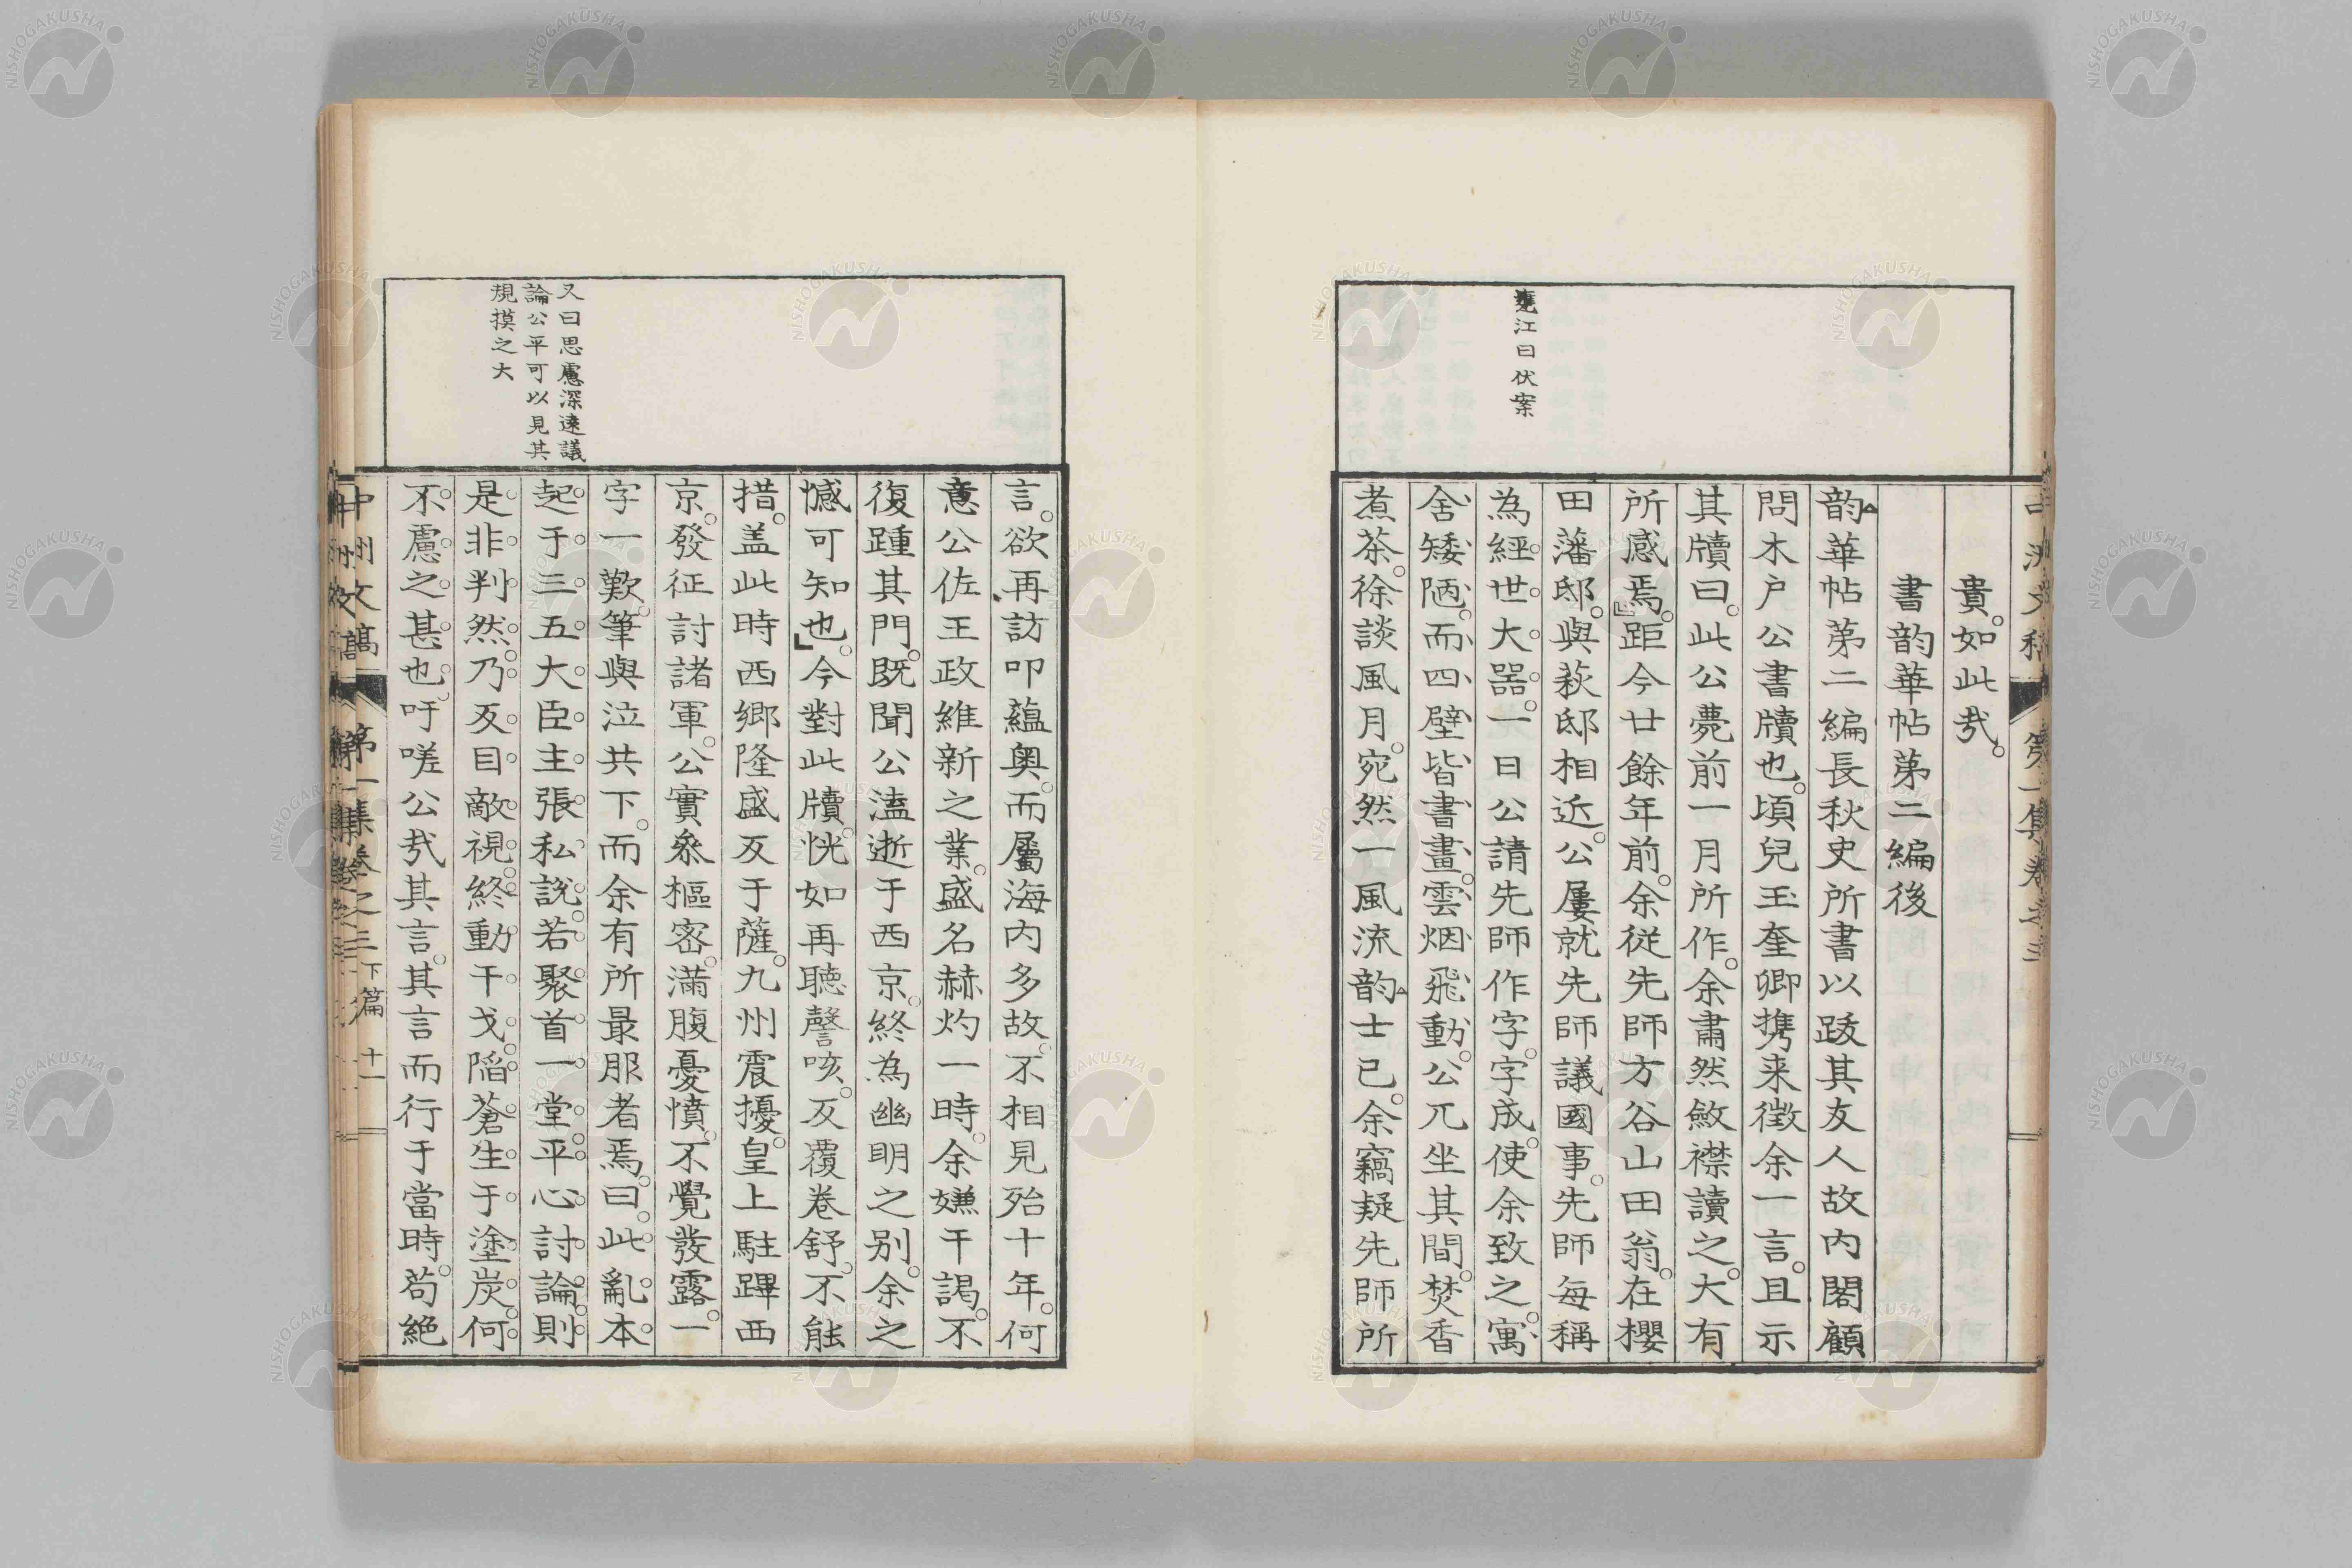 甕江曰伏案
貴。如此哉。
書韵華帖第二編後
韵華帖第二編長秋史所書以跋其友人故内閣顧
問木戸公書牘也。頃兒玉奎卿携来徴余一言。且示
其牘曰。此公薨前一月所作。余肅然斂襟讀之。大有
所感焉。』距今廿餘年前。余從先師方谷山田翁。在櫻
田藩邸。與萩邸相近。公屢就先師議國事。先師每稱
為經世大器。一日公請先師作字。字成。使余致之。寓
舍矮陋。而四壁皆書畫。雲烟飛動。公兀坐其間。焚香
煮茶。徐談風月。宛然一風流韵士已。余竊疑先師所
又曰思慮深遠議
論公平可以見其
規摸之大
言。欲再訪叩蘊奥。而屬海内多故。不相見殆十年。何
意公佐王政維新之業。盛名赫灼一時。余嫌干謁。不
復踵其門。既聞公溘逝于西京。終為幽明之別。余之
憾可知也。』今對此牘。恍如再聽謦咳。反覆卷舒。不能
措。盖此時西郷隆盛反于薩。九州震擾。皇上駐蹕西
京。發征討諸軍。公實叅樞密。滿腹憂憤。不覺發露。一
字一歎。筆與泣共下。而余有所最服者焉。曰。此亂本
起于三五大臣主張私説。若聚首一堂。平心討論。則
是非判然。乃反目敵視。終動干戈。陷蒼生于塗炭。何
不慮之甚也。吁嗟公哉其言。其言而行于當時。苟絶
中洲文稿 第一集卷之三 下篇 十一